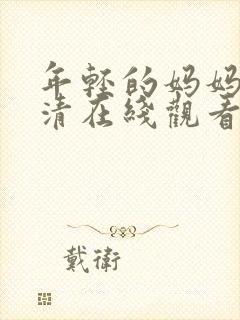 年輕的媽媽
清在綫觀看
戴衛